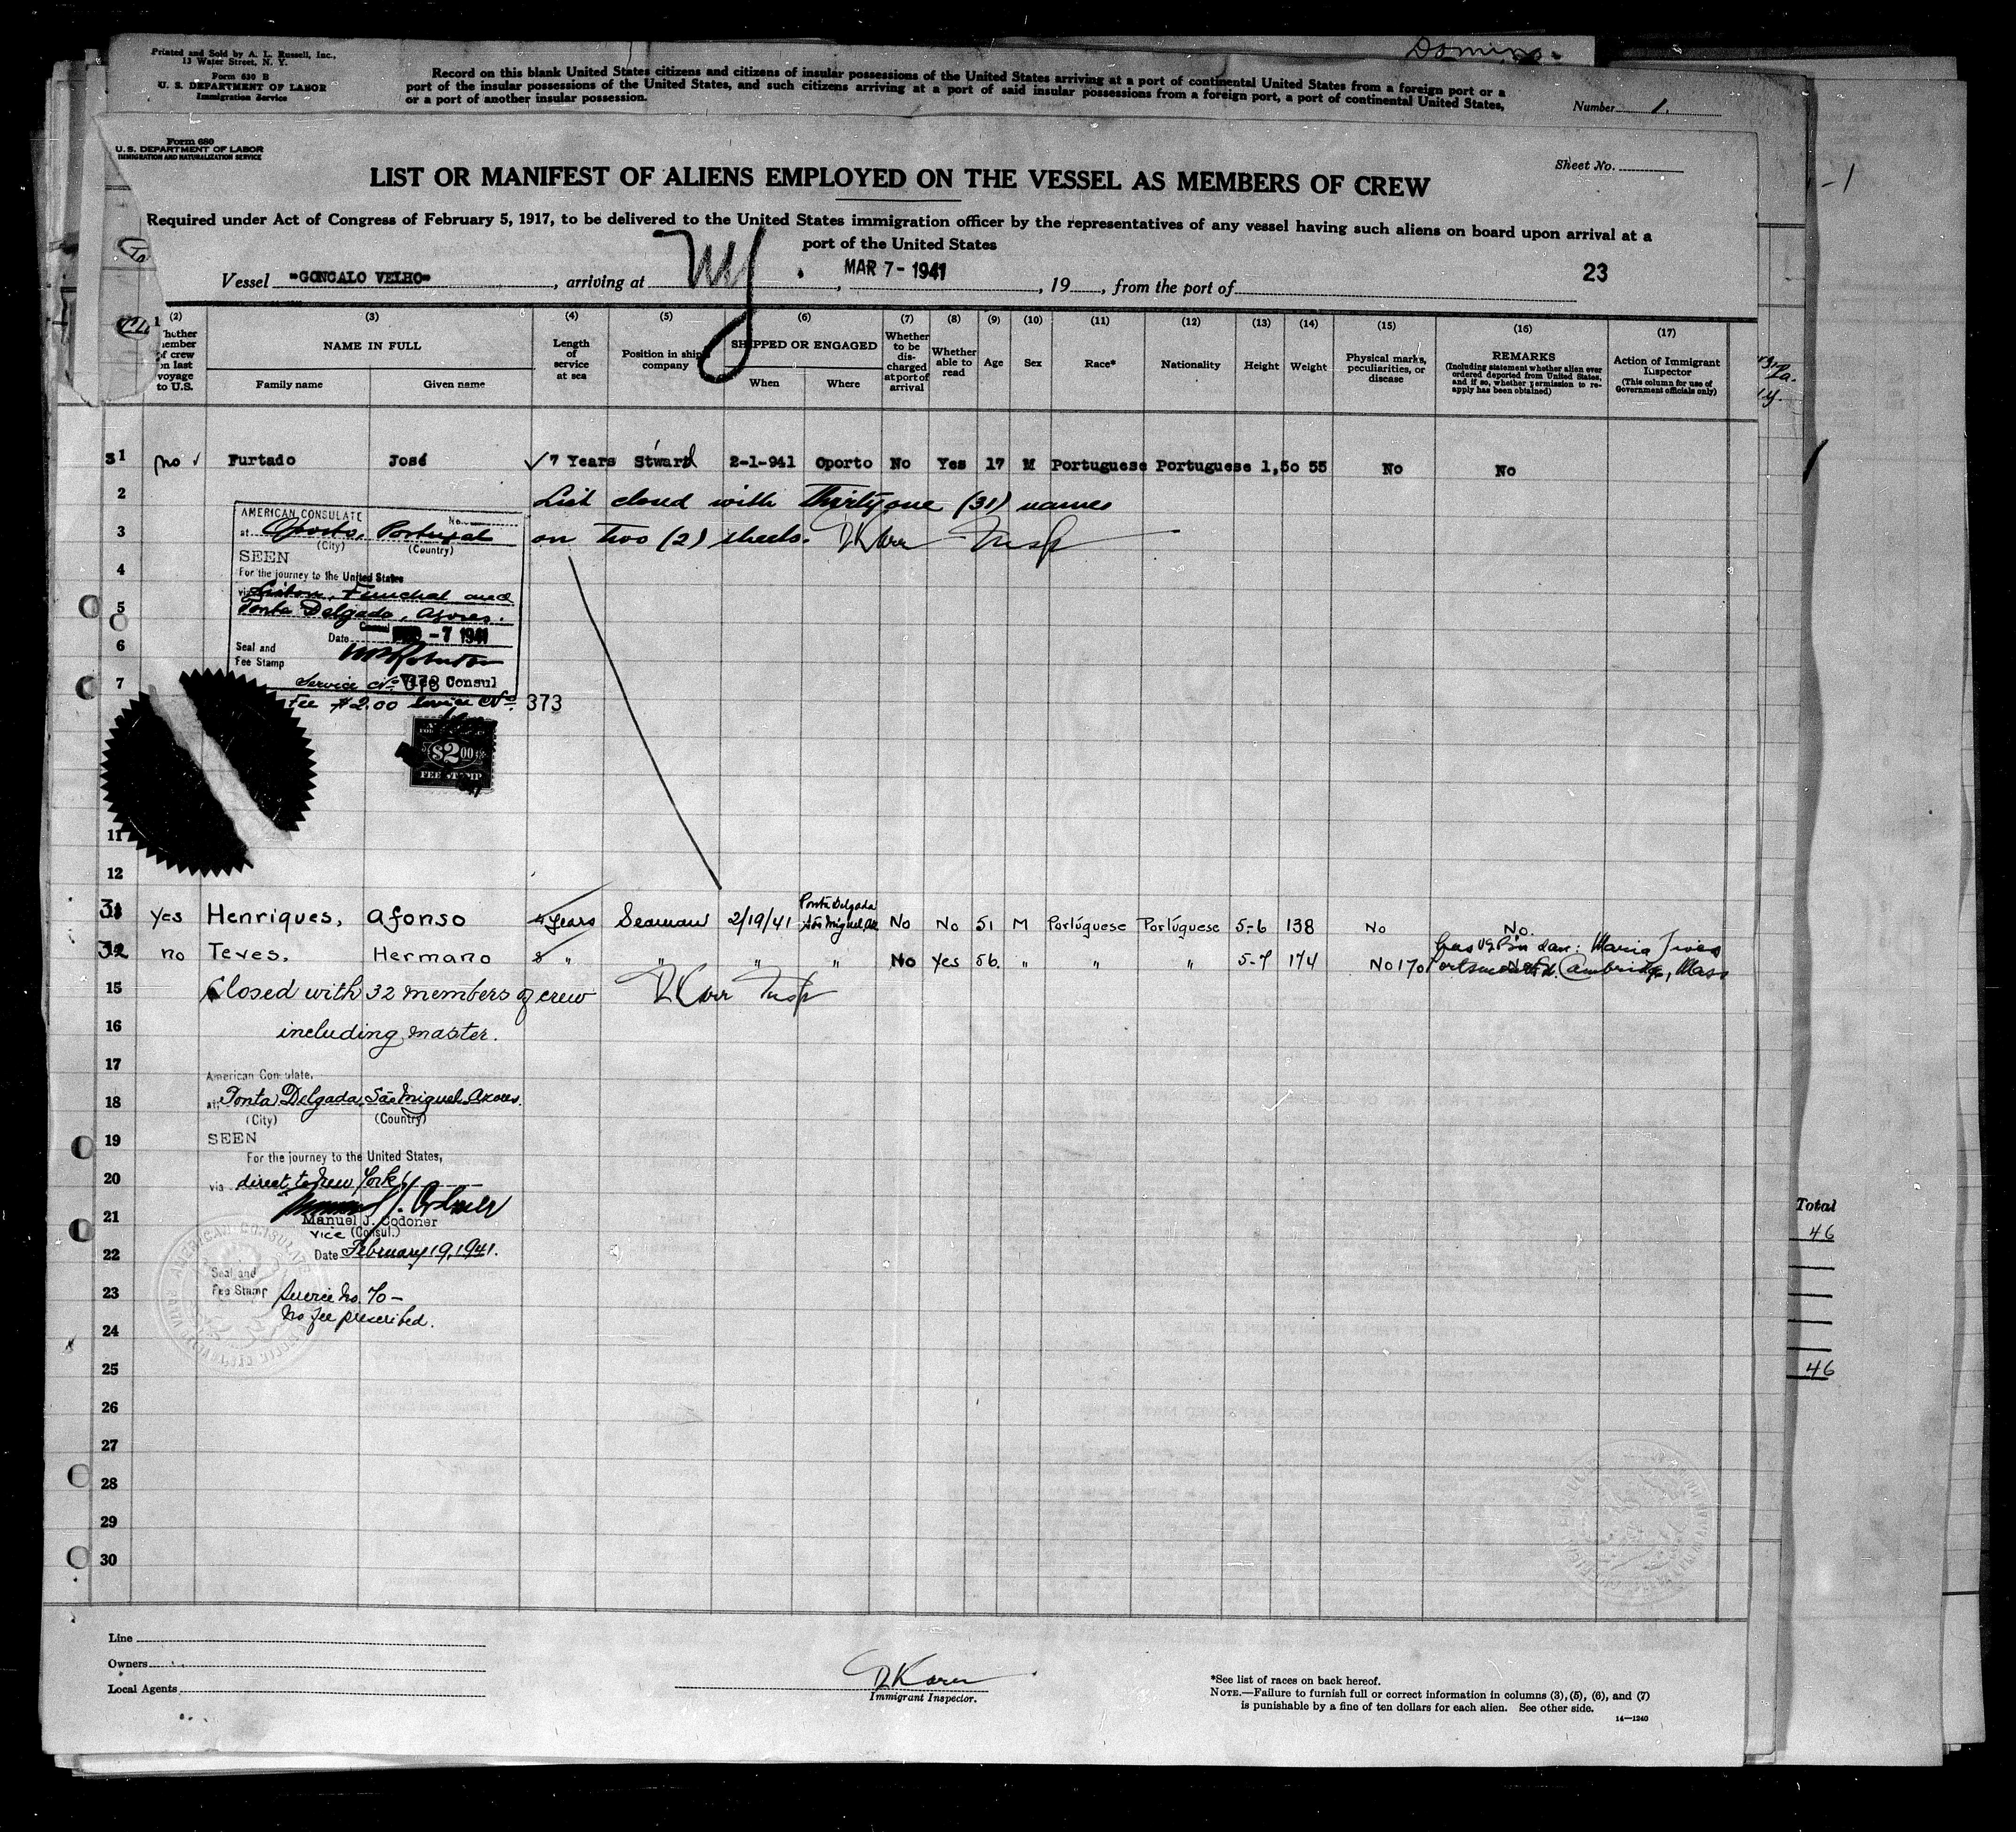 Domino-
Printed and Sold by A. L. Russell, Inc.,
13 Water Street, N. Y.
Form 630 B
U. S. DEPARTMENT OF LABOR
Immigration Service
Record on this blank United States citizens and citizens of insular possessions of the United States arriving at a port of continental United States from a foreign port or a
port of the insular possessions of the United States, and such citizens arriving at a port of said insular possessions from a foreign port, a port of continental United States,
or a port of another insular possession.
Number 1.
Form 680
U. S. DEPARTMENT OF LABOR
IMMIGRATION AND NATURALIZATION SERVICE
Sheet No.
LIST OR MANIFEST OF ALIENS EMPLOYED ON THE VESSEL AS MEMBERS OF CREW
Required under Act of Congress of February 5, 1917, to be delivered to the United States immigration officer by the representatives of any vessel having such aliens on board upon arrival at a
port of the United States
Vessel "GONCALO VELHO", arriving at NY, MAR 7 - 1941, 19, from the port of 23
(2) (3) (4) (5) (6) (7) (8) (9) (10) (11) (12) (13) (14) (15) (16) (17)
NAME IN FULL
Family name Given name
Length of service at sea
Position in ship's company
SHIPPED OR ENGAGED
When Where
Whether to be discharged at port of arrival
Whether able to read
Age
Sex
Race*
Nationality
Height
Weight
Physical marks, peculiarities, or disease
REMARKS
(Including statement whether alien ever ordered deported from United States, and if so, whether permission to reapply has been obtained)
Action of Immigrant Inspector
(This column for use of Government officials only)
31 no Furtado José 7 Years Stward 2-1-941 Oporto No Yes 17 M Portuguese Portuguese 1,50 55 No No
2 List closed with Thirty one (31) names
3 on two (2) sheets. Insp
AMERICAN CONSULATE No.
at Oporto, Portugal
(City) (Country)
SEEN
For the journey to the United States
via Lisbon, Funchal and
Ponta Delgada, Azores.
Date - 7 1941
Seal and
Fee Stamp
Service No. 373 Vice Consul
Fee $2.00 Service No. 373
4
5
6
7
$2.00
FEE STAMP
11
12
31 Yes Henriques, Afonso 4 Years Seaman 2/19/41 Ponta Delgada São Miguel Az No No 51 M Portuguese Portuguese 5-6 138 No No.
32 no Teves, Hermano 8 " " " " No Yes 56. " " " 5-7 174 No
Cambridge, Mass
15 Closed with 32 members of crew Insp
16 including master.
17
American Consulate,
18 at Ponta Delgada, São Miguel, Azores.
(City) (Country)
19 SEEN
For the journey to the United States,
20 via direct to New York
21 Manuel J. Codoner
Vice (Consul.)
22 Date February 19, 1941.
Seal and
Fee Stamp
23 Service No. 70 -
No fee prescribed.
24
25
26
27
28
29
30
Total
46
46
Line
Owners
Local Agents
Immigrant Inspector.
*See list of races on back hereof.
NOTE.—Failure to furnish full or correct information in columns (3), (5), (6), and (7)
is punishable by a fine of ten dollars for each alien. See other side.
14—1240